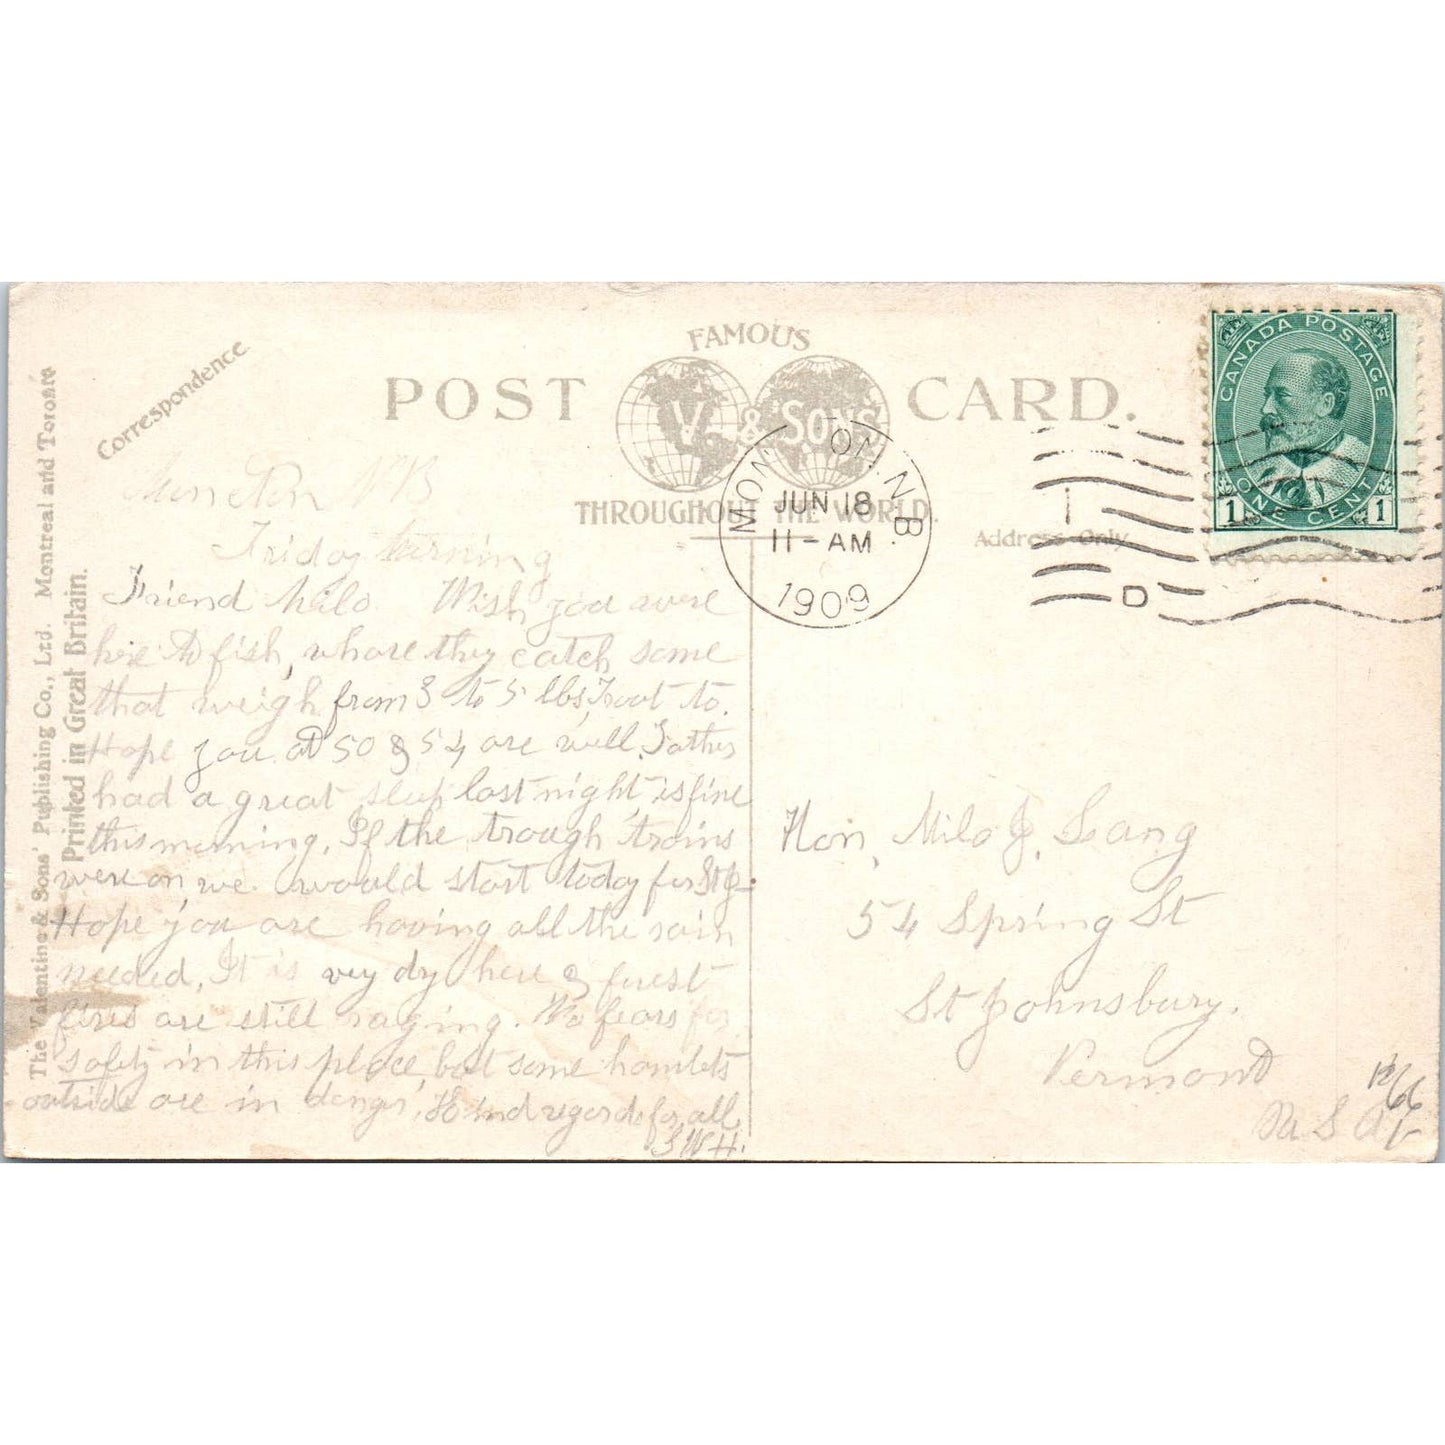 Correspondence
FAMOUS
POST CARD.
V. & SONS
THROUGHOUT THE WORLD.
Address Only
CANADA POSTAGE
1 ONE CENT 1
MONCTON. N.B.
JUN 18
11-AM
1909
I
D
The Valentine & Sons' Publishing Co., Ltd. Montreal and Toronto
Printed in Great Britain.
Moncton NB
Friday morning
Friend Milo Wish you were
here to fish, whare they catch some
that weigh from 3 to 5 lbs, Trout to.
Hope you at 50 & 54 are well. Father
had a great sleep last night, is fine
this morning. If the trough trains
were on we would start today for St J.
Hope you are having all the rain
needed. It is very dry here & forest
fires are still raging. No fears for
safety in this place, but some hamlets
outside are in danger, Kind regards for all
SWH.
Hon, Milo J. Lang
54 Spring St
St Johnsbury.
Vermont
U S A